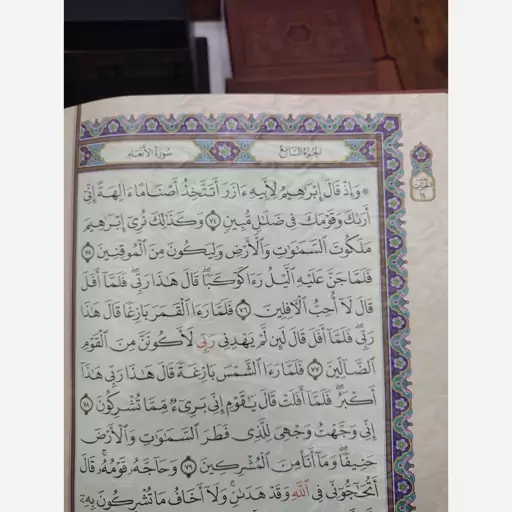 الجزء السابع
سورة الأنعام
۞ وَإِذْ قَالَ إِبْرَٰهِيمُ لِأَبِيهِ ءَازَرَ أَتَتَّخِذُ أَصْنَامًا ءَالِهَةً إِنِّىٓ
أَرَىٰكَ وَقَوْمَكَ فِى ضَلَٰلٍ مُّبِينٍ ٧٤ وَكَذَٰلِكَ نُرِىٓ إِبْرَٰهِيمَ
مَلَكُوتَ ٱلسَّمَٰوَٰتِ وَٱلْأَرْضِ وَلِيَكُونَ مِنَ ٱلْمُوقِنِينَ ٧٥
فَلَمَّا جَنَّ عَلَيْهِ ٱلَّيْلُ رَءَا كَوْكَبًا قَالَ هَٰذَا رَبِّى فَلَمَّآ أَفَلَ
قَالَ لَآ أُحِبُّ ٱلْءَافِلِينَ ٧٦ فَلَمَّا رَءَا ٱلْقَمَرَ بَازِغًا قَالَ هَٰذَا
رَبِّى فَلَمَّآ أَفَلَ قَالَ لَئِن لَّمْ يَهْدِنِى رَبِّى لَأَكُونَنَّ مِنَ ٱلْقَوْمِ
ٱلضَّآلِّينَ ٧٧ فَلَمَّا رَءَا ٱلشَّمْسَ بَازِغَةً قَالَ هَٰذَا رَبِّى هَٰذَآ
أَكْبَرُ فَلَمَّآ أَفَلَتْ قَالَ يَٰقَوْمِ إِنِّى بَرِىٓءٌ مِّمَّا تُشْرِكُونَ ٧٨
إِنِّى وَجَّهْتُ وَجْهِىَ لِلَّذِى فَطَرَ ٱلسَّمَٰوَٰتِ وَٱلْأَرْضَ
حَنِيفًا وَمَآ أَنَا۠ مِنَ ٱلْمُشْرِكِينَ ٧٩ وَحَآجَّهُۥ قَوْمُهُۥ قَالَ
أَتُحَٰٓجُّوٓنِّى فِى ٱللَّهِ وَقَدْ هَدَىٰنِ وَلَآ أَخَافُ مَا تُشْرِكُونَ بِهِۦٓ